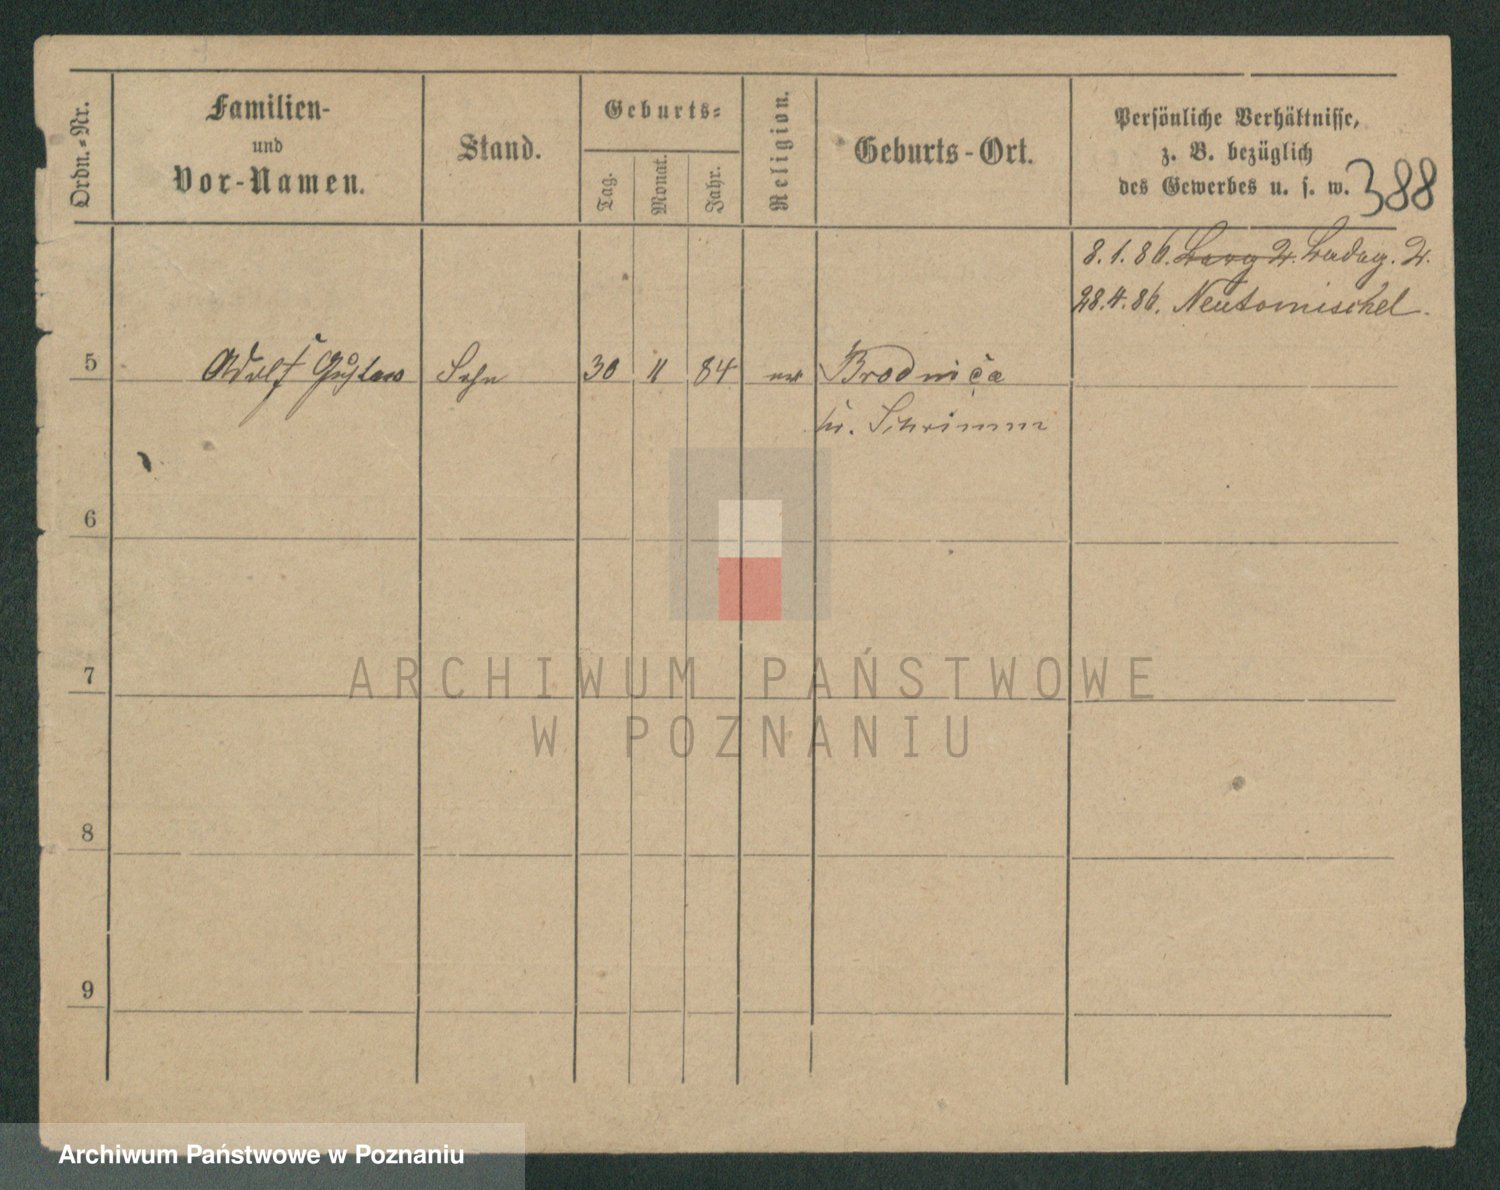 Ordn.-Nr.
Familien-
und
Vor-Namen.
Stand.
Geburts-
Tag.
Monat.
Jahr.
Religion.
Geburts-Ort.
Persönliche Verhältnisse,
z. B. bezüglich
des Gewerbes u. s. w.
388
8. 1. 86. 2.
28. 4. 86. Neutomischel.
5 Adolf Gustav Sohn 30 11 84 Brodnica
Kr. Schrimm
6
7
8
9
ARCHIWUM PAŃSTWOWE
W POZNANIU
Archiwum Państwowe w Poznaniu